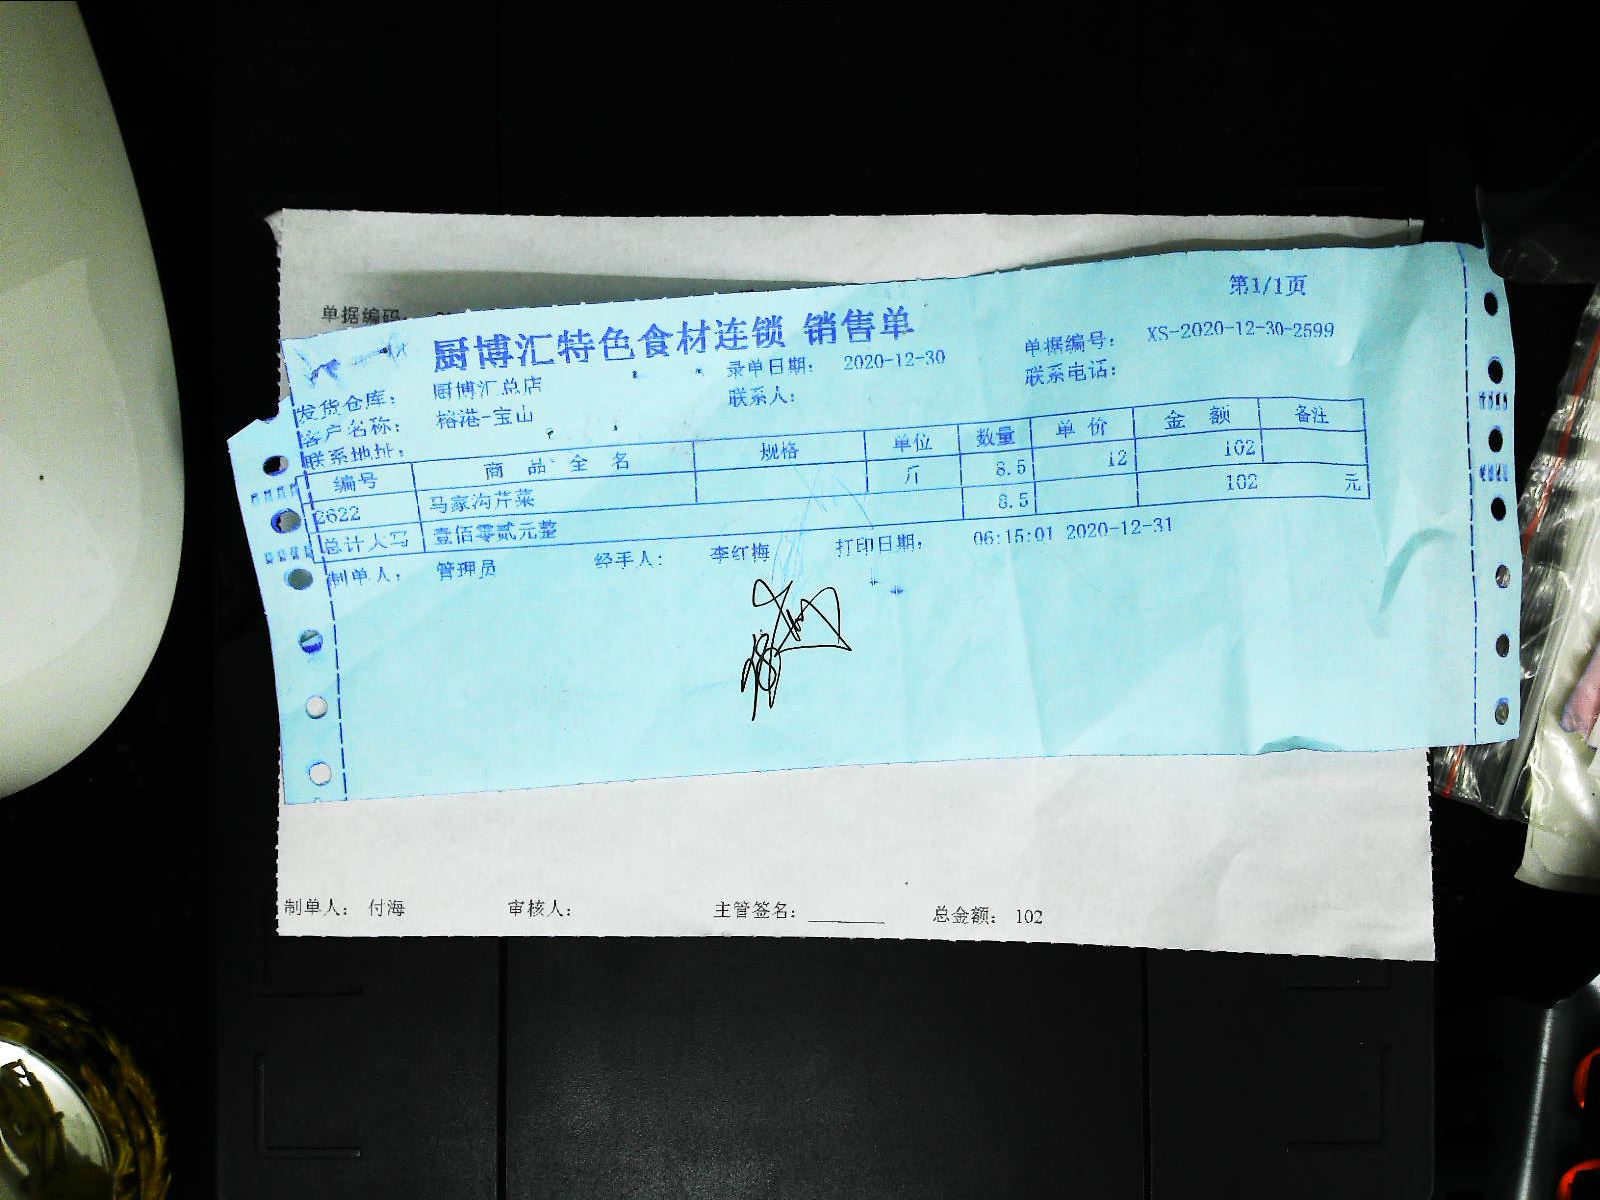 单据编码:
第1/1页
厨博汇特色食材连锁 销售单
发货仓库: 厨博汇总店 录单日期: 2020-12-30 单据编号: XS-2020-12-30-2599
客户名称: 榕港-宝山 联系人: 联系电话:
联系地址:
编号 商品全名 规格 单位 数量 单价 金额 备注
2622 马家沟芹菜 斤 8.5 12 102
总计大写 壹佰零贰元整 8.5 102 元
制单人: 管理员 经手人: 李红梅 打印日期: 06:15:01 2020-12-31
制单人: 付海 审核人: 主管签名: ________ 总金额: 102